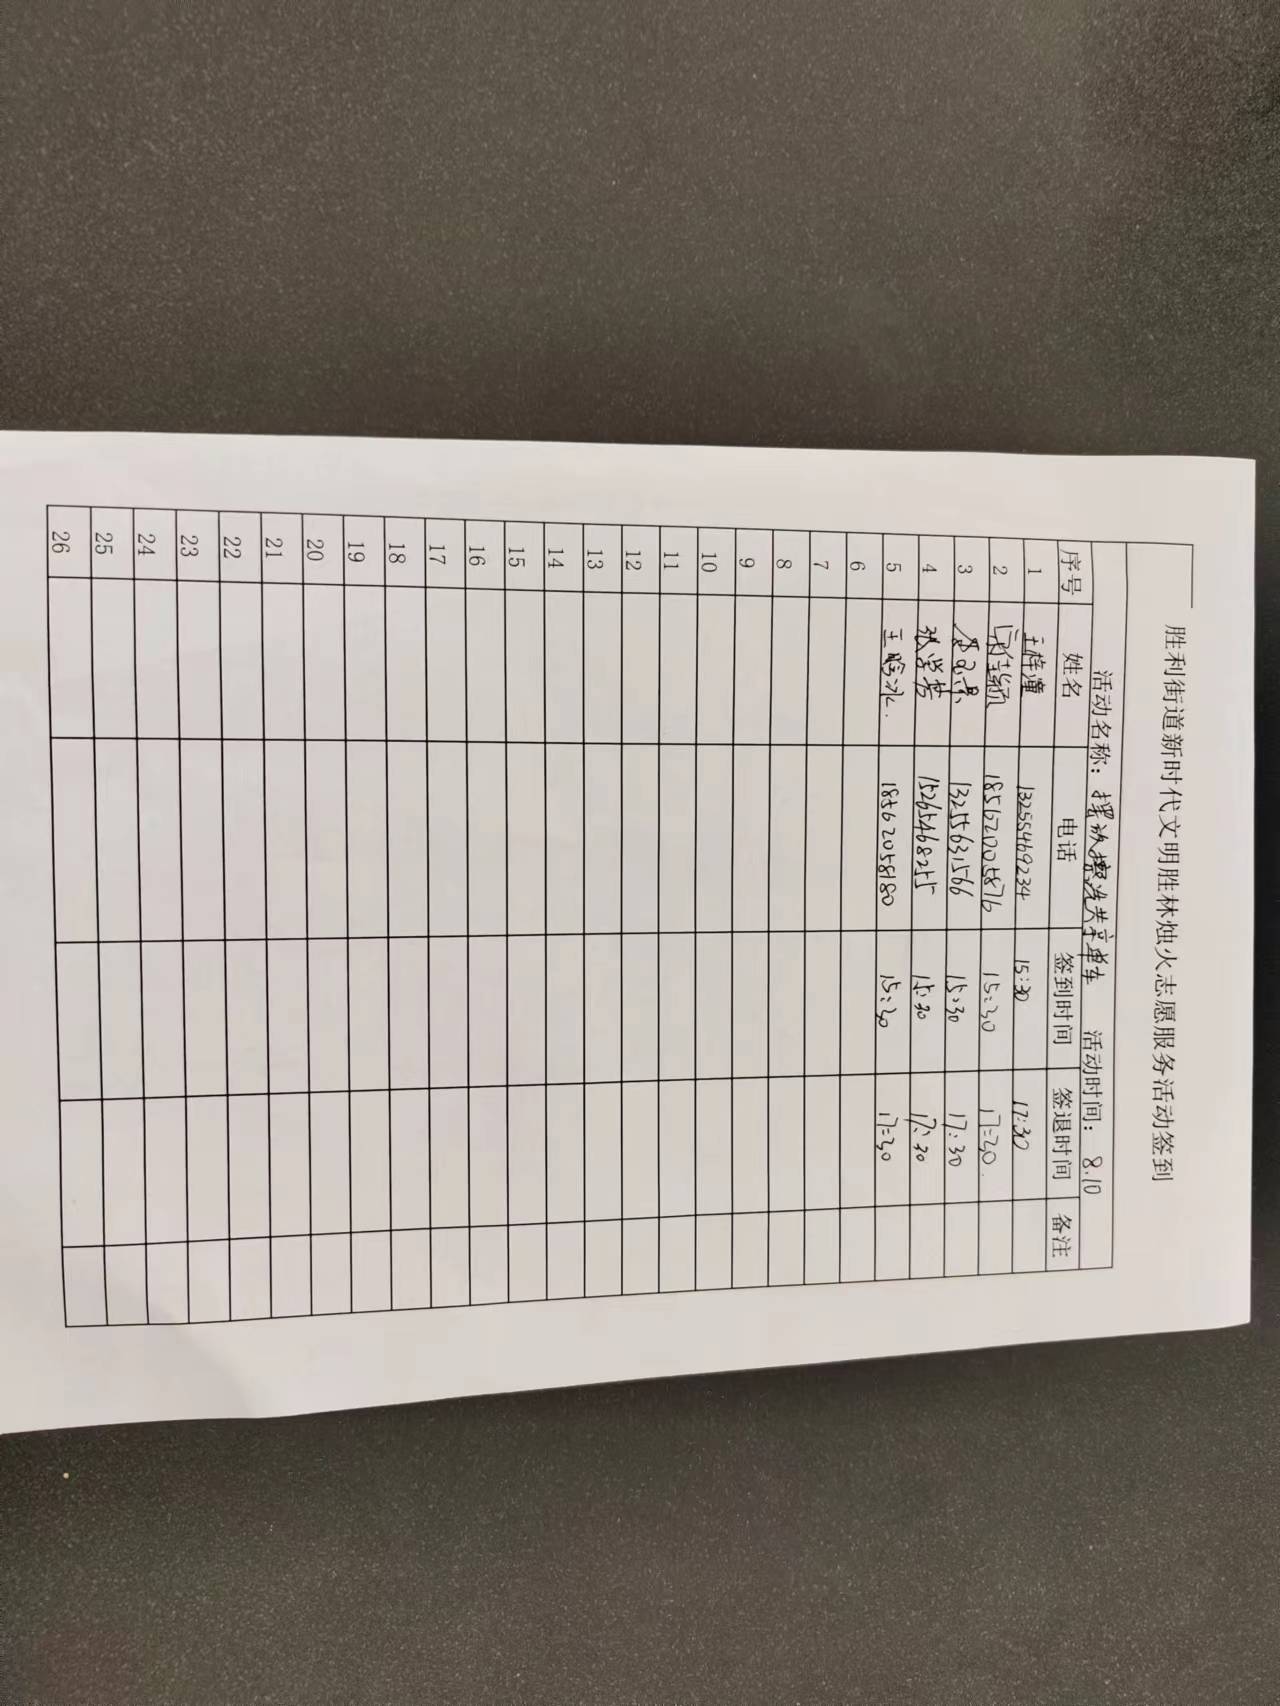 胜利街道新时代文明胜林烛火志愿服务活动签到
活动名称：摆放擦洗共享单车 活动时间：8.10
序号 姓名 电话 签到时间 签退时间 备注
1 王梓潼 13255469234 15:30 17:30
2 15:30 17:30
3 13255631566 15:30 17:30
4 张学营 15265468255 15:30 17:30
5 18562058180 15:30 17:30
6
7
8
9
10
11
12
13
14
15
16
17
18
19
20
21
22
23
24
25
26